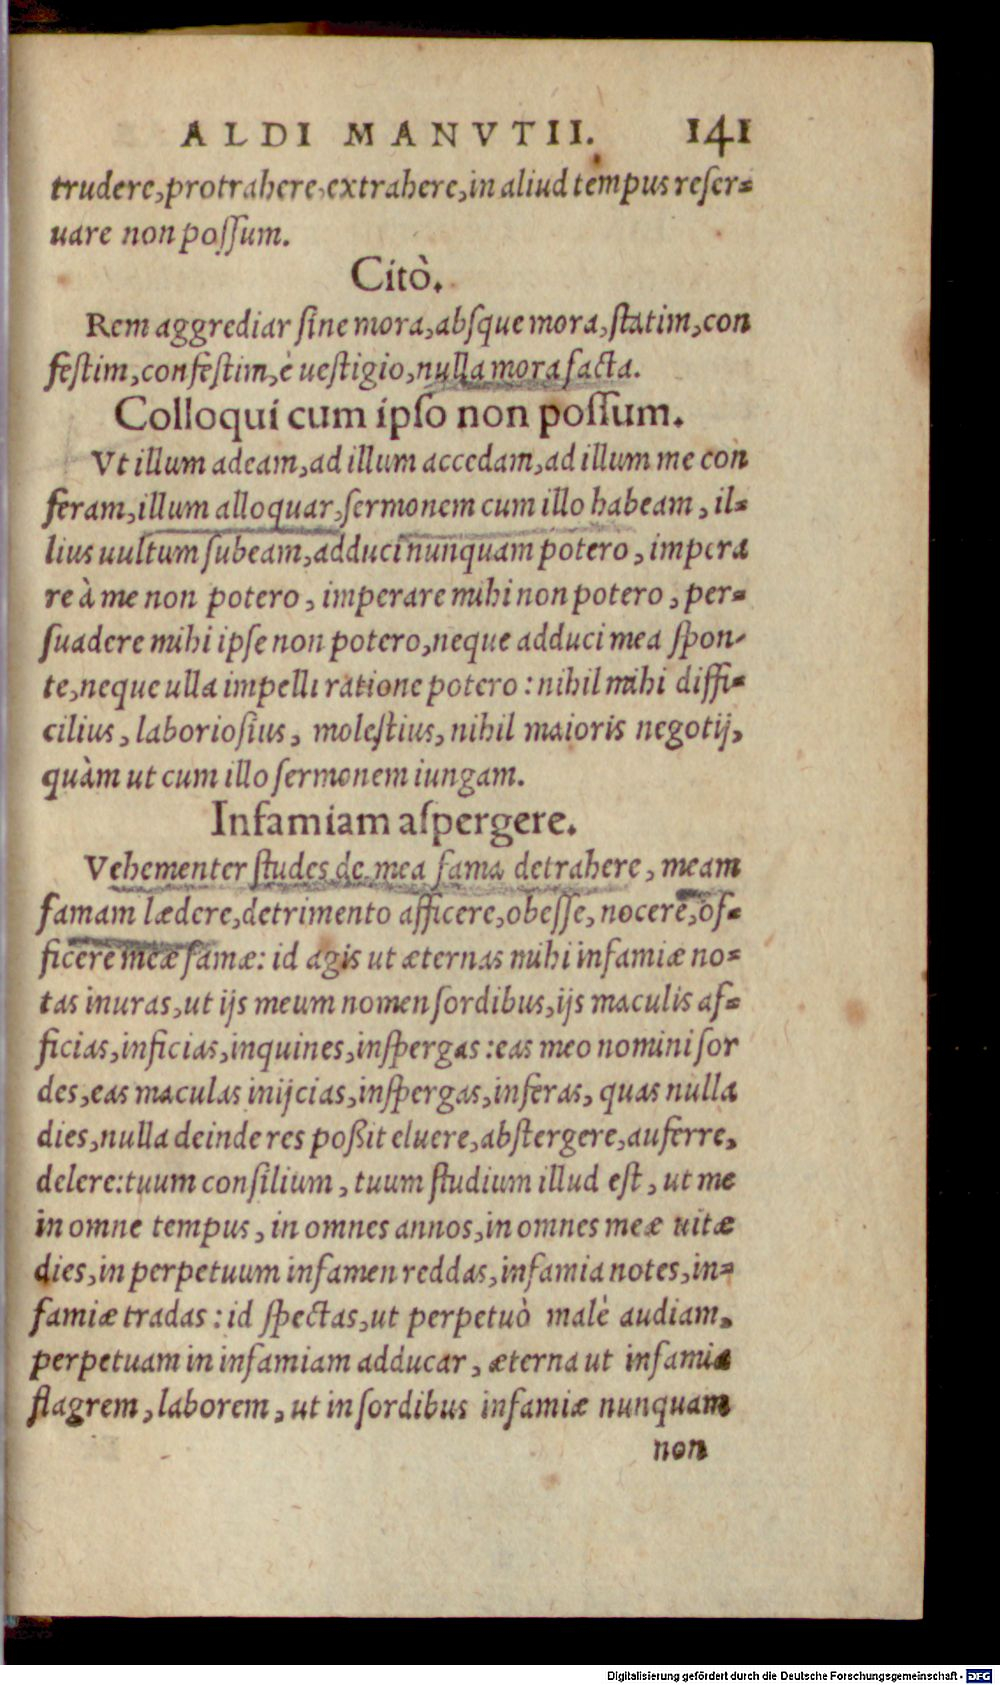 ALDI MANVTII. 141
trudere, protrahere, extrahere, in aliud tempus reſer-
uare non poſſum.
Citò.
Rem aggrediar ſine mora, abſque mora, ſtatim, con
feſtim, confeſtim, è ueſtigio, nulla mora facta.
Colloqui cum ipſo non poſſum.
Vt illum adeam, ad illum accedam, ad illum me con
feram, illum alloquar, ſermonem cum illo habeam, il-
lius uultum ſubeam, adduci nunquam potero, impera
re à me non potero, imperare mihi non potero, per-
ſuadere mihi ipſe non potero, neque adduci mea ſpon-
te, neque ulla impelli ratione potero: nihil mihi diffi-
cilius, laborioſius, moleſtius, nihil maioris negotij,
quàm ut cum illo ſermonem iungam.
Infamiam aſpergere.
Vehementer ſtudes de mea fama detrahere, meam
famam lædere, detrimento afficere, obeſſe, nocere, of-
ficere meæ famæ: id agis ut æternas mihi infamiæ no-
tas inuras, ut ijs meum nomen ſordibus, ijs maculis af-
ficias, inficias, inquines, inſpergas: eas meo nomini ſor
des, eas maculas inijcias, inſpergas, inferas, quas nulla
dies, nulla deinde res poßit eluere, abſtergere, auferre,
delere: tuum conſilium, tuum ſtudium illud eſt, ut me
in omne tempus, in omnes annos, in omnes meæ uitæ
dies, in perpetuum infamen reddas, infamia notes, in-
famiæ tradas: id ſpectas, ut perpetuò malè audiam,
perpetuam in infamiam adducar, æterna ut infamia
flagrem, laborem, ut in ſordibus infamiæ nunquam
non
Digitalisierung gefördert durch die Deutsche Forschungsgemeinschaft - DFG